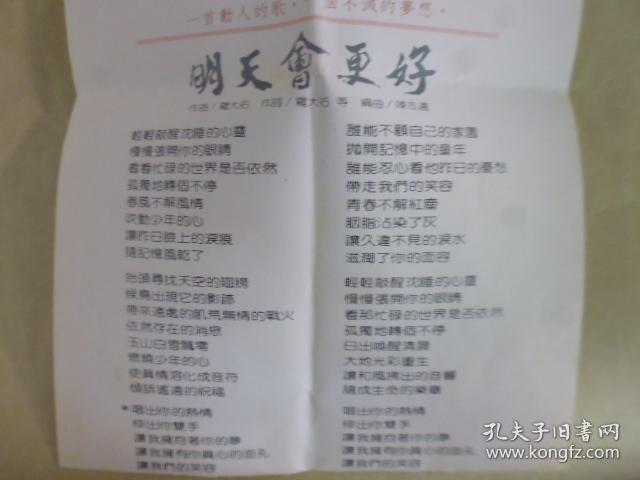 一首動人的歌，一個不滅的夢想。
明天會更好
作曲/羅大佑 作詞/羅大佑 等 編曲/陳志遠
輕輕敲醒沈睡的心靈
慢慢張開你的眼睛
看看忙碌的世界是否依然
孤獨地轉個不停
春風不解風情
吹動少年的心
讓昨日臉上的淚痕
隨記憶風乾了
抬頭尋找天空的翅膀
候鳥出現它的影跡
帶來遠處的飢荒無情的戰火
依然存在的消息
玉山白雪飄零
燃燒少年的心
使真情溶化成音符
傾訴遙遠的祝福
*唱出你的熱情
伸出你雙手
讓我擁抱著你的夢
讓我擁有你真心的面孔
讓我們的笑容
誰能不顧自己的家園
拋開記憶中的童年
誰能忍心看他昨日的憂愁
帶走我們的笑容
青春不解紅塵
胭脂沾染了灰
讓久違不見的淚水
滋潤了你的面容
輕輕敲醒沈睡的心靈
慢慢張開你的眼睛
看那忙碌的世界是否依然
孤獨地轉個不停
日出喚醒清晨
大地光彩重生
讓和風拂出的音響
譜成生命的樂章
唱出你的熱情
伸出你雙手
讓我擁抱著你的夢
讓我擁有你真心的面孔
讓我們的笑容
孔夫子旧书网